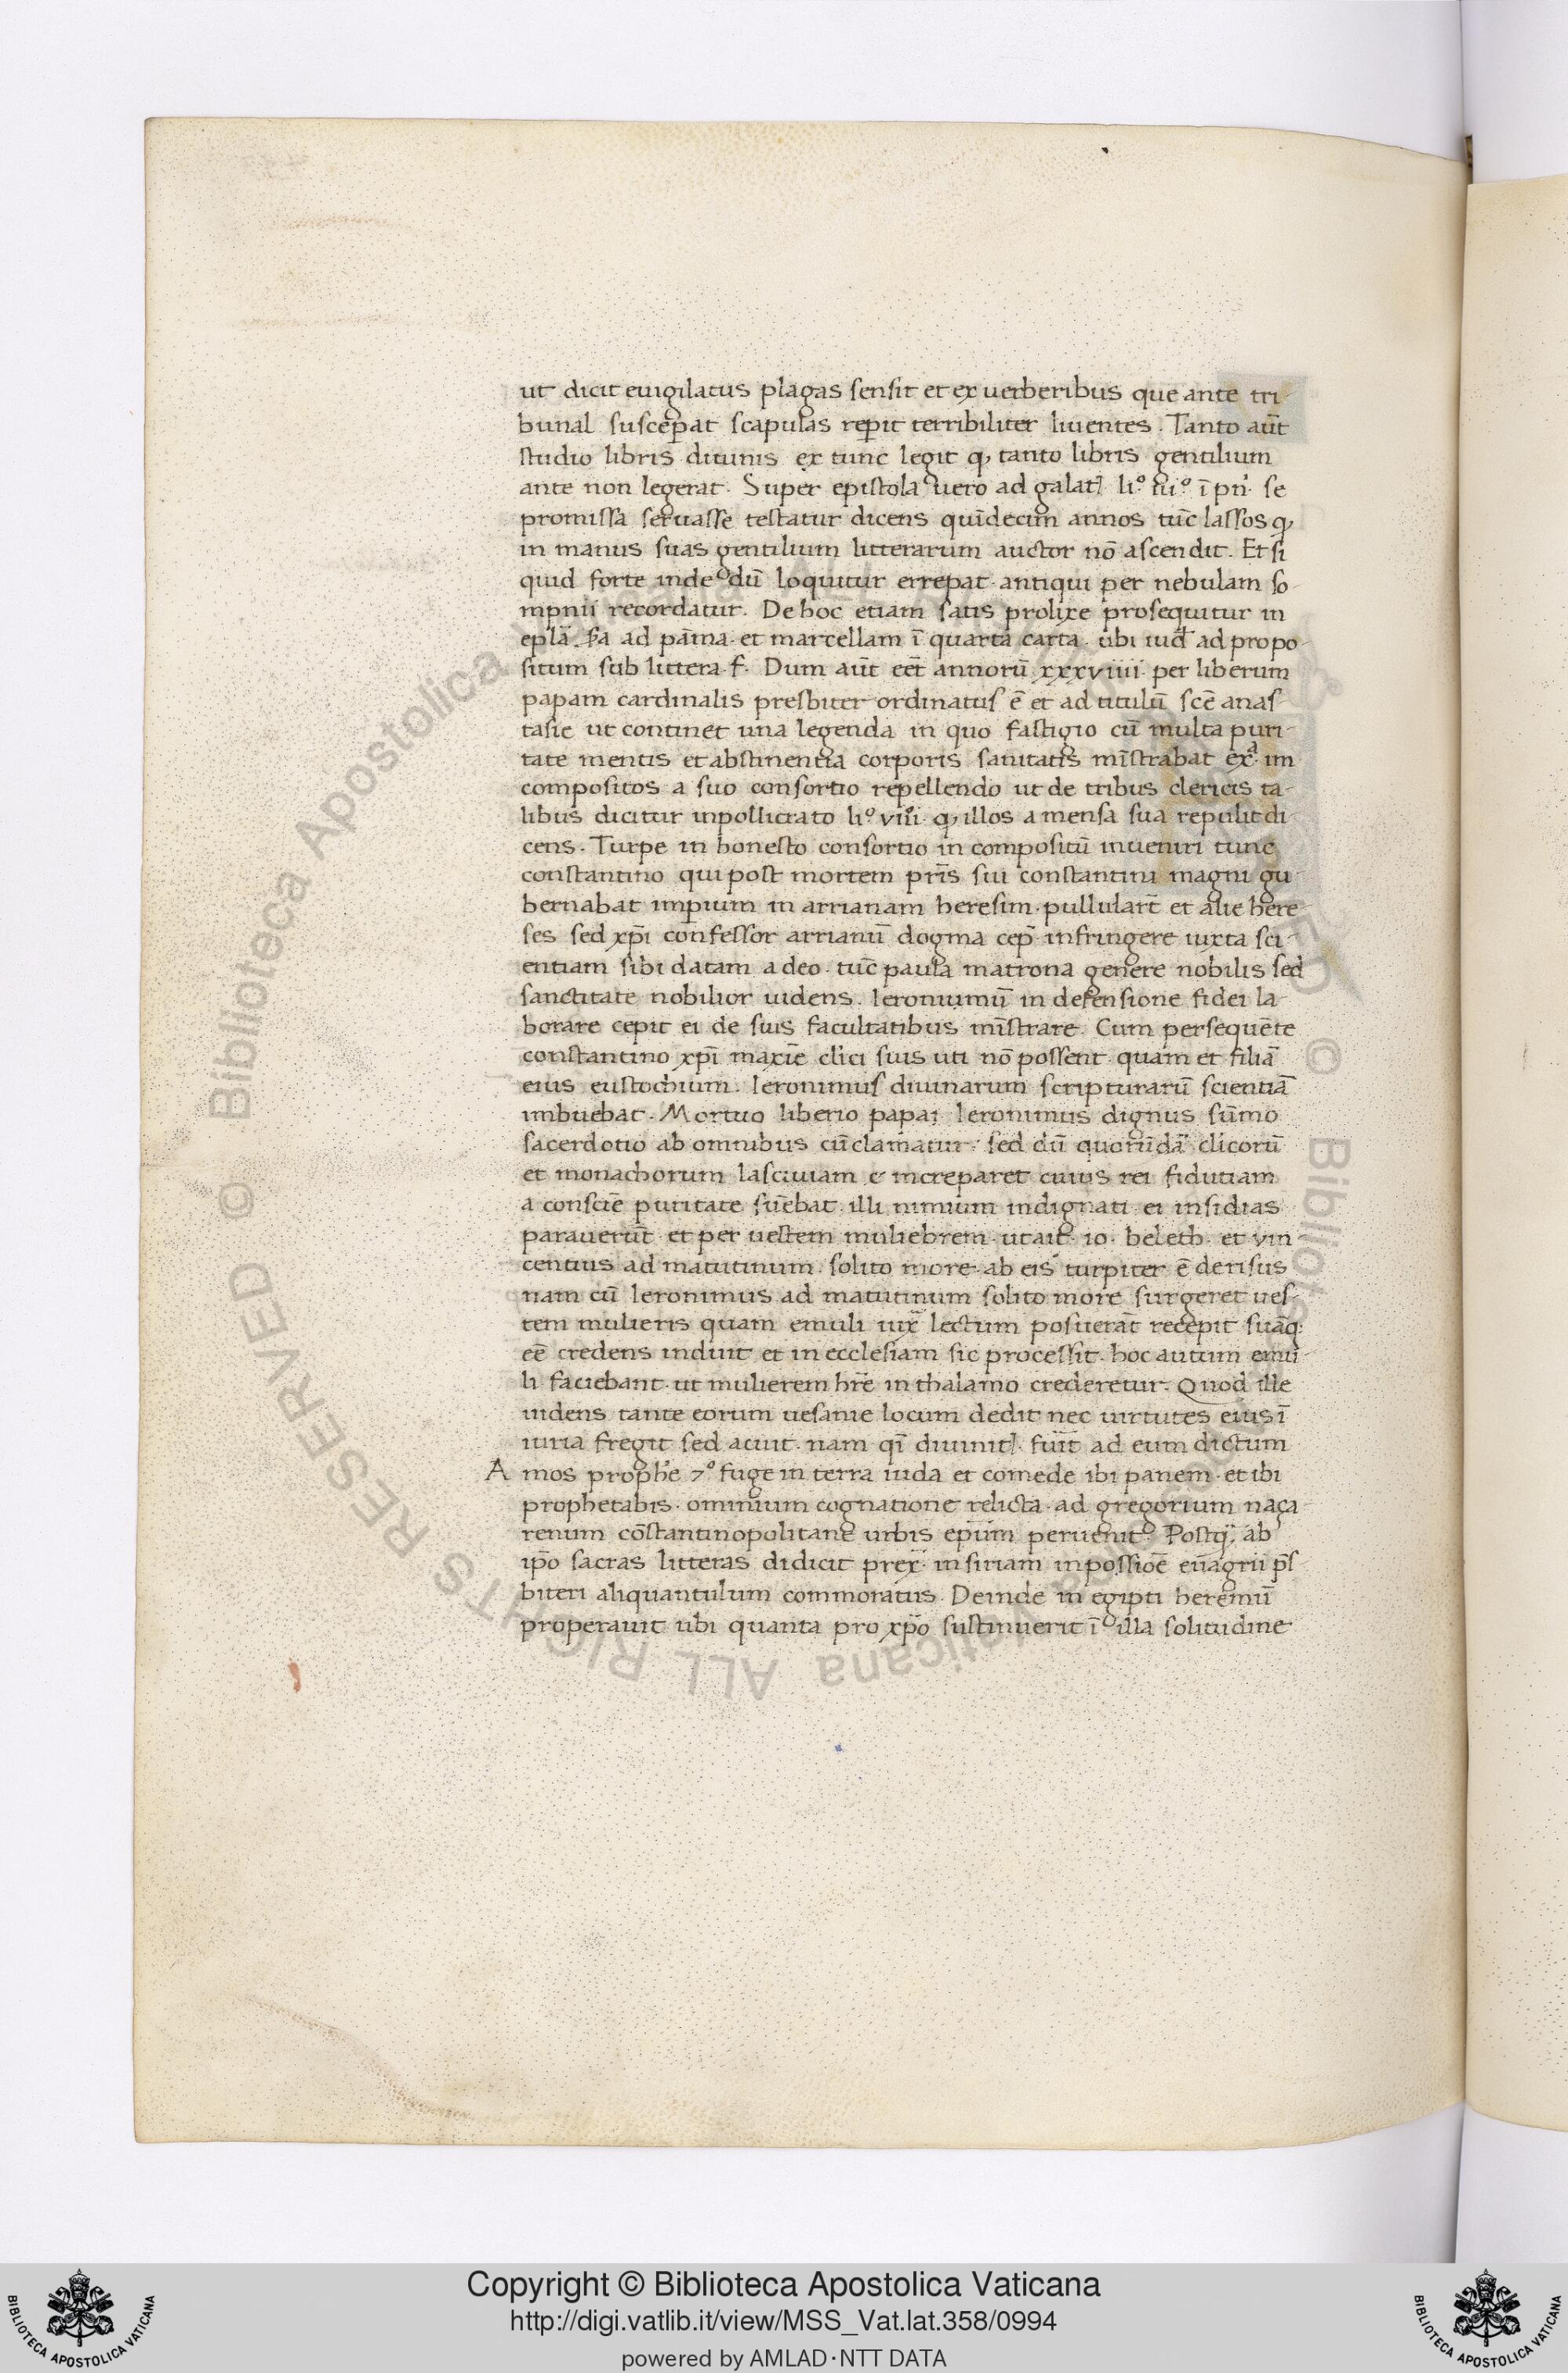 ut dicit euigilatus plagas sensit et ex uerberibus que ante tri-
bunal suscep̄at scapulas rep̄it terribiliter liuentes. Tanto aūt
studio libris diuinis ex tunc legit ꝙ tanto libris gentilium
ante non legerat. Super epistola uero ad galat li.º iii.º ī pn̄. se
promissa seruasse testatur dicens quīdecim annos tūc lassos ꝙ
in manus suas gentilium litterarum auctor nō ascendit. Et si
quid forte inde dū loquitur errepat. antiqui per nebulam so-
mpnii recordatur. De hoc etiam satis prolixe prosequitur in
ep̄la ad pām̄a. et marcellam ī quarta carta. ubi ad propo-
situm sub littera. f. Dum aūt eēt annorū xxxviiii. per liberum
papam cardinalis presbiter ordinatus ē et ad titulū scē anas-
tasie ut continet una legenda in quo fastigio cū multa puri-
tate mentis et abstinentia corporis sanitatis mīstrabat ex.ª im
compositos a suo consortio repellendo ut de tribus clericis ta-
libus dicitur inpollicrato li.º viii. ꝙ illos a mensa sua repulit di-
cens. Turpe in honesto consortio in compositū inueniri tunc
constantino qui post mortem pr̄is sui constantini magni gu-
bernabat imp̄ium in arrianam heresim. pullular̄t et alie here-
ses sed xp̄i confessor arrianū dogma cep̄. infringere iuxta sci-
entiam sibi datam a deo. tūc paula matrona genere nobilis sed
sanctitate nobilior uidens. Ieronimū in defensione fidei la-
borare cepit ei de suis facultatibus mīstrare. Cum persequēte
constantino xp̄i maxīe clīci suis uti nō possent. quam et filiā
eius eustochium. Ieronimus diuinarum scripturarū scientiā
imbuebat. Mortuo liberio papa; Ieronimus dignus sūmo
sacerdotio ab omnibus cūclamatur. sed dū quorūdā clicorū
et monachorum lasciuiam e increparet cuius rei fidutiam
a consciē puritate sūebat. illi nimium indignati. ei insidias
parauerūt. et per uestem muliebrem. ut ait. io. beleth. et vin-
centius ad matutinum. solito more. ab eis turpiter ē derisus
nam cū Ieronimus ad matutinum solito more surgeret ues-
tem mulieris quam emuli iux̄ lectum posuerāt recepit suāq;
eē credens induit et in ecclesiam sic processit. hoc autum emu-
li faciebant. ut mulierem hr̄e in thalamo crederetur. Quod ille
uidens tante eorum uesanie locum dedit nec uirtutes eius ī
iuria fregit sed acuit. nam qī diuinit. fuīt ad eum dictum
A mos prophe 7º fuge in terra iuda et comede ibi panem. et ibi
prophetabis. ominium cognatione relicta. ad gregorium naça-
renum cōstantinopolitane urbis ep̄um peruenit. Postq̄. ab
ip̄o sacras litteras didicit prex̄. in siriam in possiōe euagrii p̄s
biteri aliquantulum commoratus. Deinde in egipti heremū
properauit ubi quanta pro xp̄o sustinuerit ī illa solitudine
Copyright © Biblioteca Apostolica Vaticana
http://digi.vatlib.it/view/MSS_Vat.lat.358/0994
powered by AMLAD·NTT DATA
BIBLIOTECA APOSTOLICA VATICANA
BIBLIOTECA APOSTOLICA VATICANA